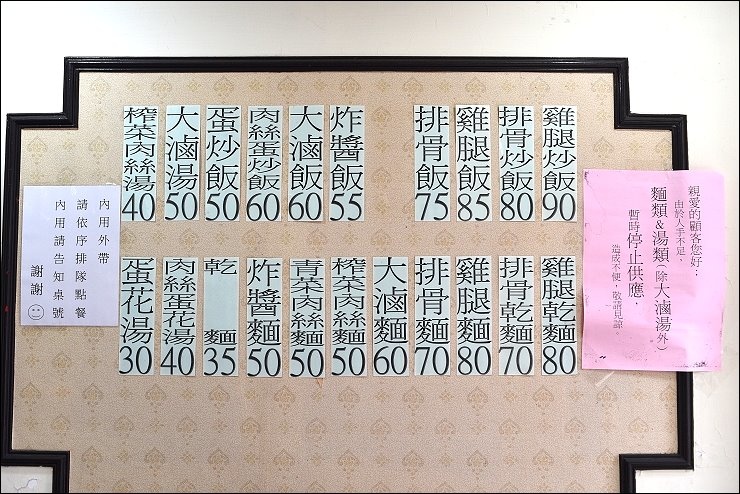 雞腿炒飯90
排骨炒飯80
雞腿飯85
排骨飯75
炸醬飯55
大滷飯60
肉絲蛋炒飯60
蛋炒飯50
大滷湯50
榨菜肉絲湯40
雞腿乾麵80
排骨乾麵70
雞腿麵80
排骨麵70
大滷麵60
榨菜肉絲麵50
青菜肉絲麵50
炸醬麵50
乾麵35
肉絲蛋花湯40
蛋花湯30
親愛的顧客您好：
由於人手不足、
麵類&湯類（除大滷湯外）
暫時停止供應，
造成不便，敬請見諒。
內用外帶
請依序排隊點餐
內用請告知桌號
謝謝